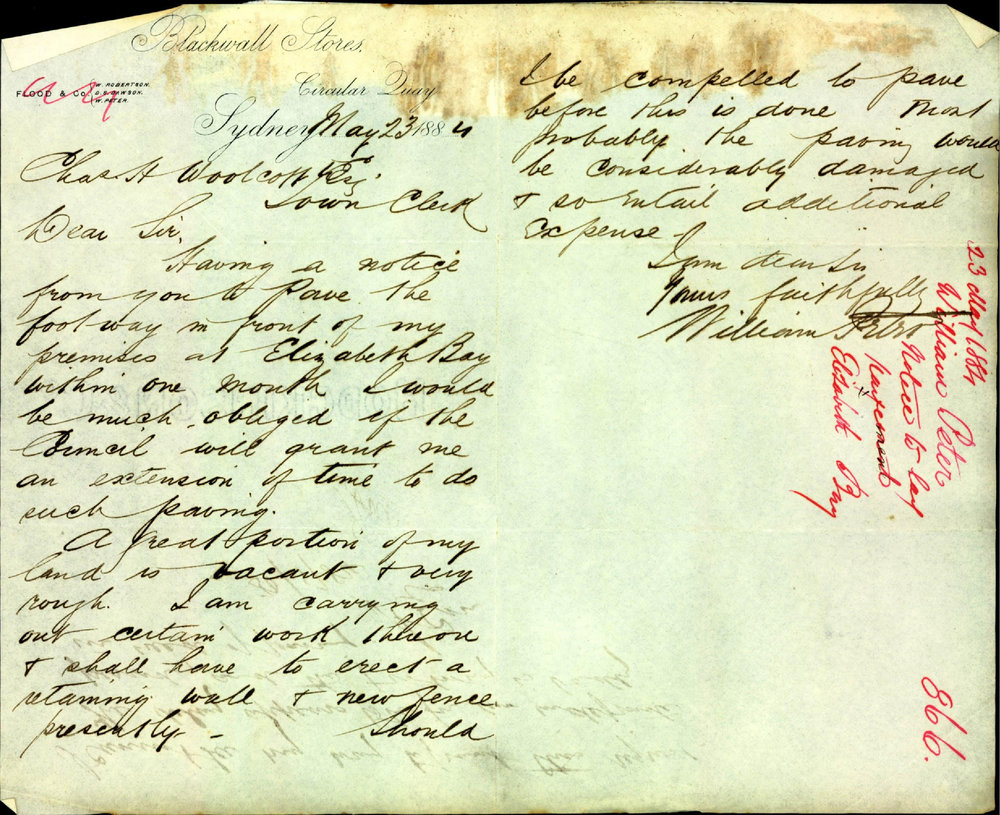 Blackwall Stores,
Circular Quay
FLOOD & Co.
W. ROBERTSON.
D. S. DAWSON.
W. PETER.
Sydney May 23 1884
Chas. H Woolcott Esq
Town Clerk
Dear Sir,
Having a notice
from you to Pave the
foot way in front of my
premises at Elizabeth Bay
within one month I would
be much obliged if the
Council will grant me
an extension of time to do
such paving.
A great portion of my
land is vacant & very
rough. I am carrying
out certain work thereon
& shall have to erect a
retaining wall & new fence
presently - Should
I be compelled to pave
before this is done most
probably the paving would
be considerably damaged
& so entail additional
expense -
I am dear Sir
Yours faithfully
William Peter
23 May 1884
William Peter
Notice to lay
Pavement
Elizabeth Bay
866.